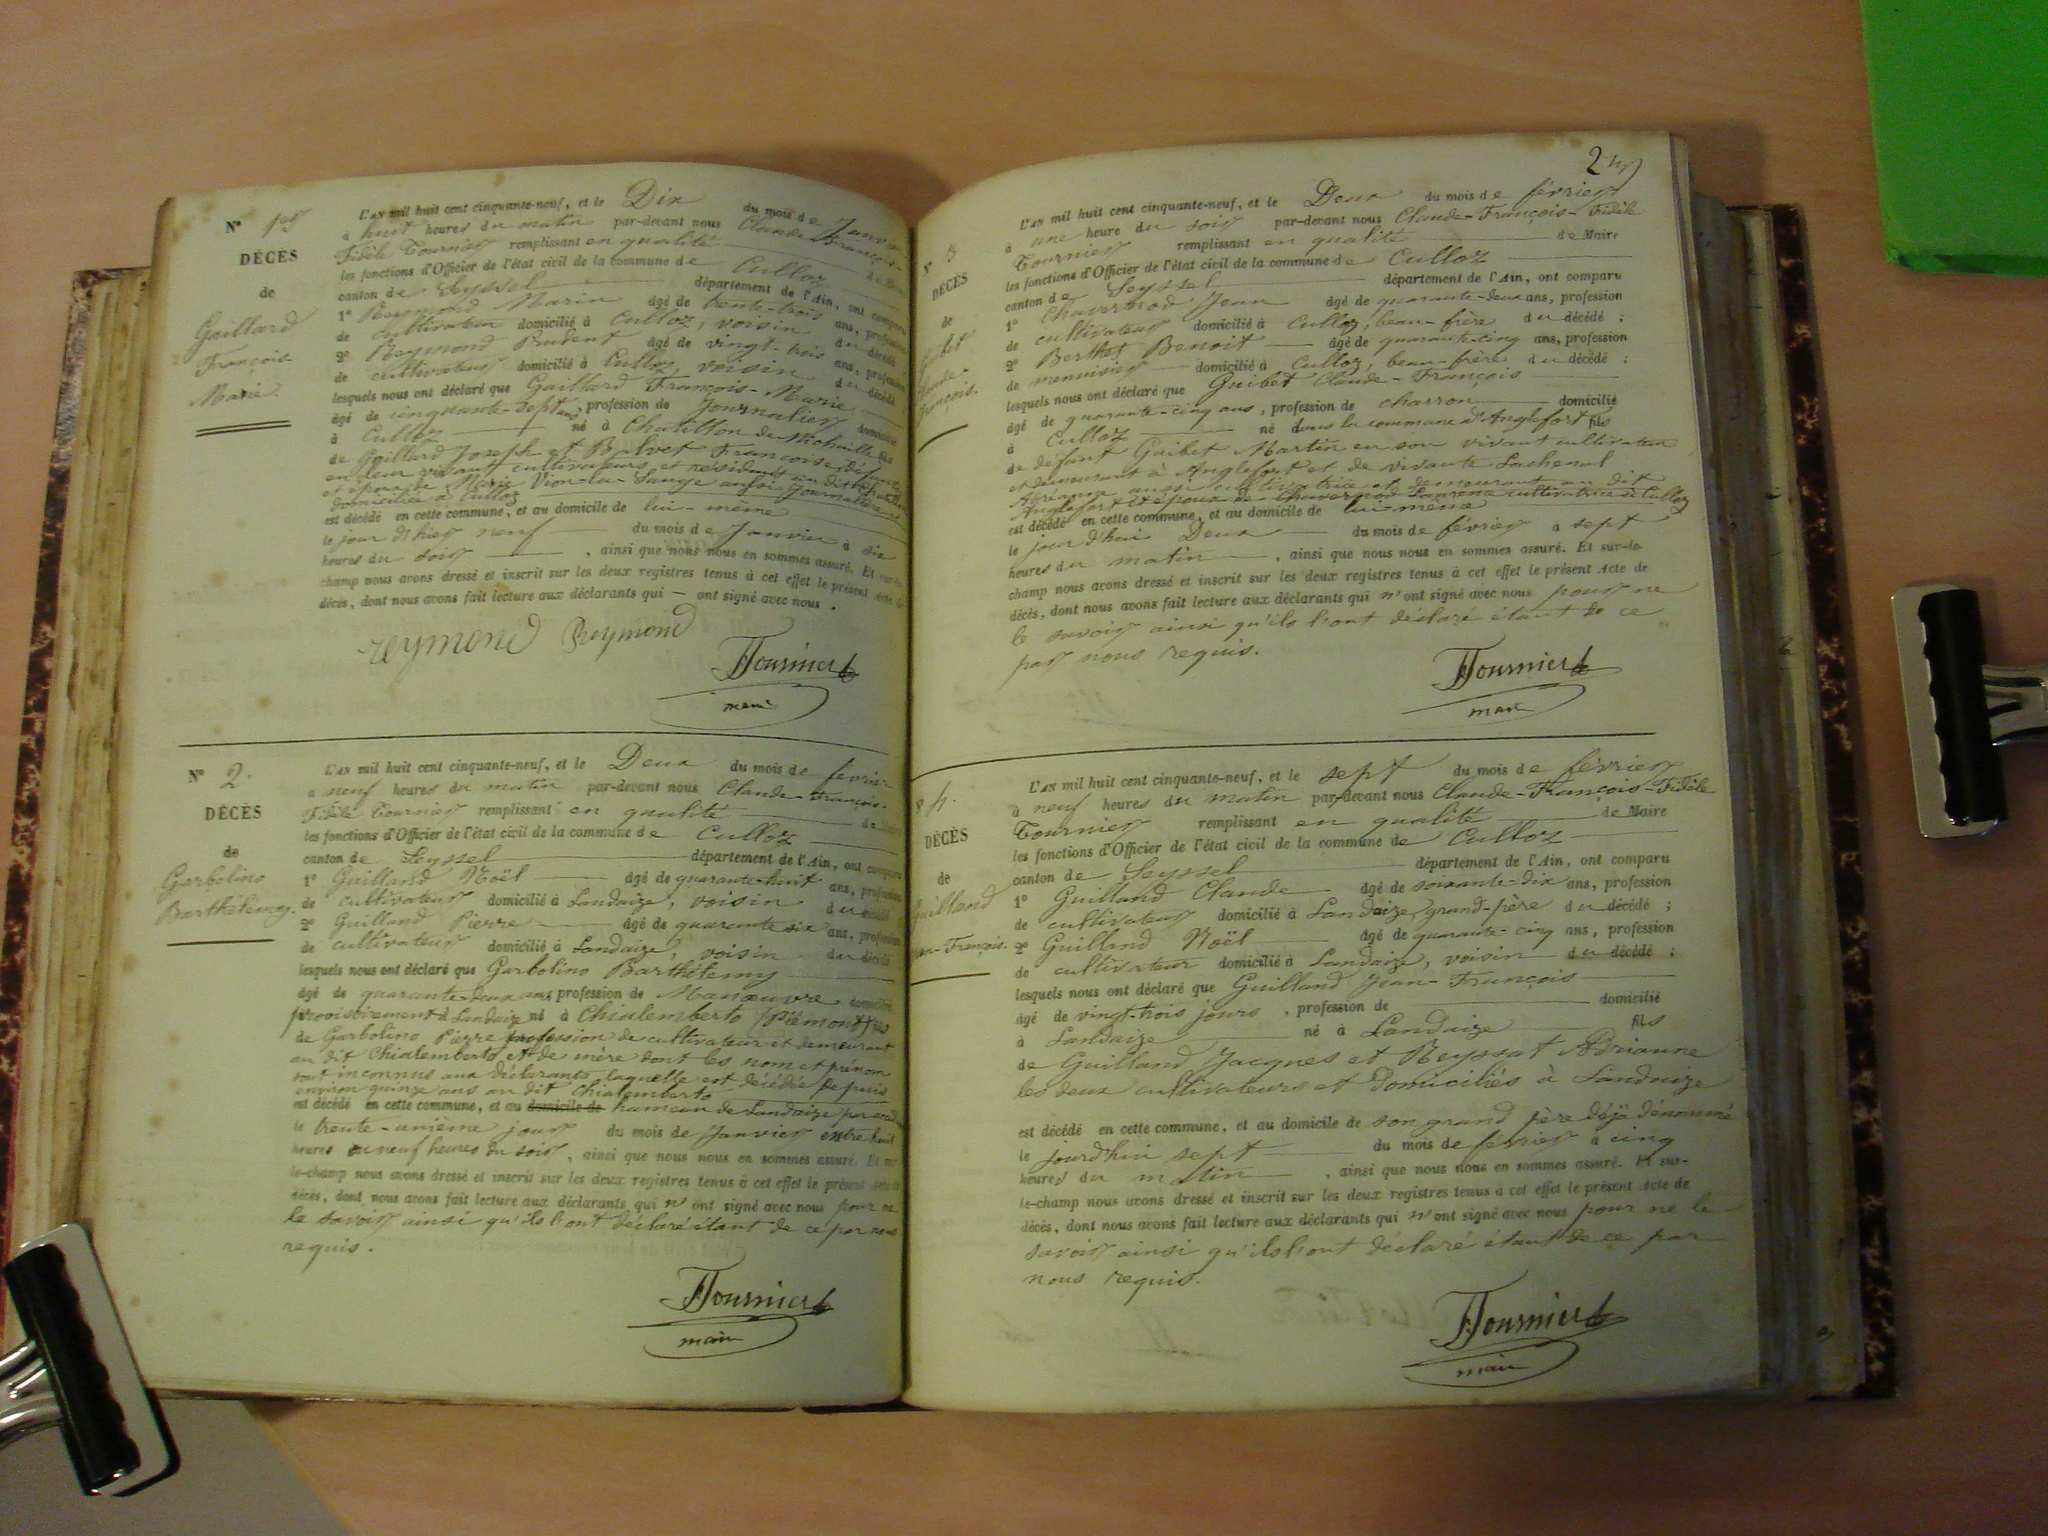 N° 1er
DÉCÈS
de
Gaillard
François
Marie
L'AN mil huit cent cinquante-neuf, et le Dix du mois de Janvier
à huit heures du matin par-devant nous Claude-François-
Fidèle Tournier remplissant en qualité
les fonctions d'Officier de l'état civil de la commune de Culloz
canton de Seyssel département de l'Ain, ont comparu
1° Reymond Marin âgé de trente-trois ans, profession
de cultivateur domicilié à Culloz, voisin du décédé
2° Reymond Prudent âgé de vingt-trois ans, profession
de cultivateur domicilié à Culloz, voisin du décédé
lesquels nous ont déclaré que Gaillard François-Marie
âgé de cinquante-sept ans, profession de Journalier domicilié
à Culloz né à Chatillon de Michaille fils
de Gaillard Joseph et Françoise, défunts
en leur vivant cultivateurs et résidant au dit
et époux de Marie Vion-la- aussi Journalière
domiciliée à Culloz
est décédé en cette commune, et au domicile de lui-même
le jour d'hier neuf du mois de Janvier à six
heures du soir, ainsi que nous nous en sommes assuré. Et sur-le-
champ nous avons dressé et inscrit sur les deux registres tenus à cet effet le présent Acte de
décès, dont nous avons fait lecture aux déclarants qui — ont signé avec nous.
reymond Reymond
FTournier
maire
N° 2.
DÉCÈS
de
Garbolino
Barthélemy.
L'AN mil huit cent cinquante-neuf, et le Deux du mois de février
à neuf heures du matin par-devant nous Claude-François-
Fidèle Tournier remplissant en qualité de Maire
les fonctions d'Officier de l'état civil de la commune de Culloz
canton de Seyssel département de l'Ain, ont comparu
1° Guilland Noël âgé de quarante-huit ans, profession
de cultivateur domicilié à Landaize, voisin du décédé
2° Guilland Pierre âgé de quarante six ans, profession
de cultivateur domicilié à Landaize, voisin du décédé
lesquels nous ont déclaré que Garbolino Barthélemy
âgé de quarante-deux ans, profession de Manœuvre domicilié
provisoirement à Landaize né à Chialemberto (Piémont) fils
de Garbolino Pierre profession de cultivateur et demeurant
au dit Chialemberto, et de mère dont les nom et prénom
sont inconnus aux déclarants, laquelle est décédée depuis
environ quinze ans au dit Chialemberto
est décédé en cette commune, et au domicile de hameau de Landaize par
le trente-unième jour du mois de Janvier entre huit
heures ou neuf heures du soir, ainsi que nous nous en sommes assuré. Et sur-
le-champ nous avons dressé et inscrit sur les deux registres tenus à cet effet le présent Acte de
décès, dont nous avons fait lecture aux déclarants qui n'ont signé avec nous pour ne
le savoir ainsi qu'ils l'ont déclaré étant de ce par nous
requis.
FTournier
maire
2
N° 3
DÉCÈS
de
Guibet
Claude-
François.
L'AN mil huit cent cinquante-neuf, et le Deux du mois de février
à une heure du soir par-devant nous Claude-François-Fidèle
Tournier remplissant en qualité de Maire
les fonctions d'Officier de l'état civil de la commune de Culloz
canton de Seyssel département de l'Ain, ont comparu
1° Chavernod Jean âgé de quarante-deux ans, profession
de cultivateur domicilié à Culloz, beau-frère du décédé ;
2° Berthet Benoit âgé de quarante-cinq ans, profession
de menuisier domicilié à Culloz, beau-frère du décédé ;
lesquels nous ont déclaré que Guibet Claude-François
âgé de quarante-cinq ans, profession de charron domicilié
à Culloz né dans la commune d'Anglefort fils
de défunt Guibet Martin en son vivant cultivateur
et demeurant à Anglefort et de vivante Lachenal
aussi cultivatrice et demeurant au dit
Anglefort et époux de Chavernod Laurence cultivatrice à Culloz
est décédé en cette commune, et au domicile de lui-même
le jour d'hui Deux du mois de février à sept
heures du matin, ainsi que nous nous en sommes assuré. Et sur-le-
champ nous avons dressé et inscrit sur les deux registres tenus à cet effet le présent Acte de
décès, dont nous avons fait lecture aux déclarants qui n'ont signé avec nous pour ne
le savoir ainsi qu'ils l'ont déclaré étant de ce
par nous requis.
FTournier
maire
N° 4.
DÉCÈS
de
Guilland
Jean-François.
L'AN mil huit cent cinquante-neuf, et le sept du mois de février
à neuf heures du matin par-devant nous Claude-François-Fidèle
Tournier remplissant en qualité de Maire
les fonctions d'Officier de l'état civil de la commune de Culloz
canton de Seyssel département de l'Ain, ont comparu
1° Guilland Claude âgé de soixante-dix ans, profession
de cultivateur domicilié à Landaize, grand-père du décédé ;
2° Guilland Noël âgé de quarante-cinq ans, profession
de cultivateur domicilié à Landaize, voisin du décédé ;
lesquels nous ont déclaré que Guilland Jean-François
âgé de vingt-trois jours, profession de domicilié
à Landaize né à Landaize fils
de Guilland Jacques et Reyssat Adrianne
les deux cultivateurs et domiciliés à Landaize
est décédé en cette commune, et au domicile de son grand père déjà dénommé
le jourd'hui sept du mois de février à cinq
heures du matin, ainsi que nous nous en sommes assuré. Et sur-
le-champ nous avons dressé et inscrit sur les deux registres tenus à cet effet le présent Acte de
décès, dont nous avons fait lecture aux déclarants qui n'ont signé avec nous pour ne le
savoir ainsi qu'ils l'ont déclaré étant de ce par
nous requis.
FTournier
maire